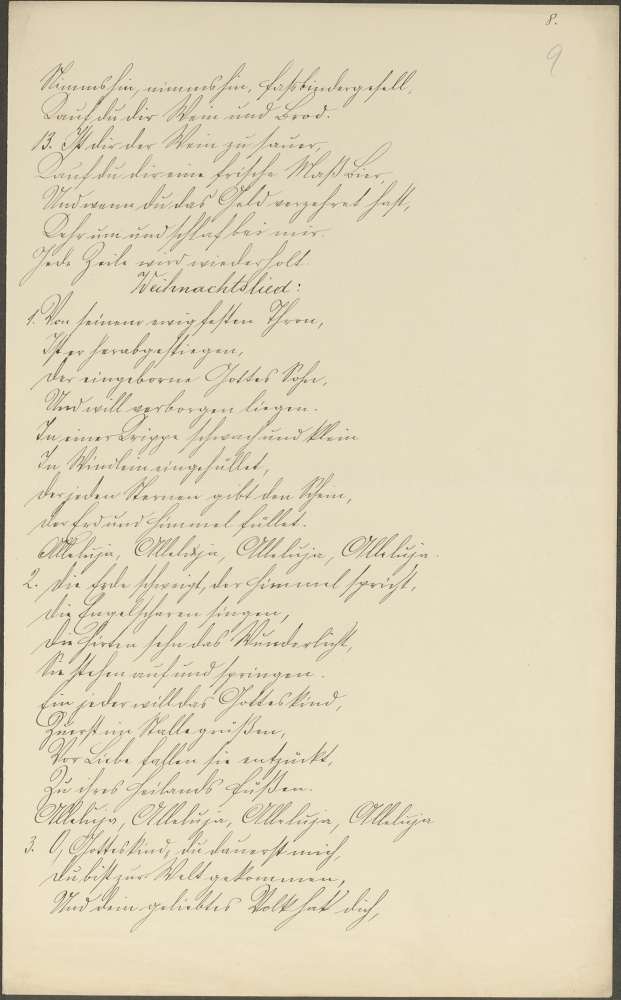 8.
9
Nimms hin, nimms hin, Faßbindergesell,
Kauf du dir Wein und Brod.
13. Ist dir der Wein zu sauer,
Kauf du dir eine frische Maß Bier,
Und wenn du das Geld verzehret hast,
Kehr um und schlaf bei mir.
Jede Zeile wird wiederholt.
Weihnachtslied:
1. Von seinem ewig festen Thron,
Ist er herabgestiegen,
Der eingeborne Gottes Sohn,
Und will verborgen liegen.
In einer Krippe schwach und klein
In Windlein eingehüllet,
Der jeden Sternen gibt den Schein,
Der Erd und Himmel füllet.
Alleluja, Alleluja, Alleluja, Alleluja.
2. Die Erde schweigt, der Himmel spricht,
Die Engelscharen singen,
Die Hirten sehn das Wunderlicht,
Sie stehen auf und springen.
Ein jeder will das Gotteskind,
Zuerst im Stalle grüßen,
Vor Liebe fallen sie entzückt,
Zu ihres Heilands Füßen.
Alleluja, Alleluja, Alleluja, Alleluja
3. O, Gotteskind, du dauerst mich,
Du bist zur Welt gekommen,
Und dein geliebtes Volk hat dich,